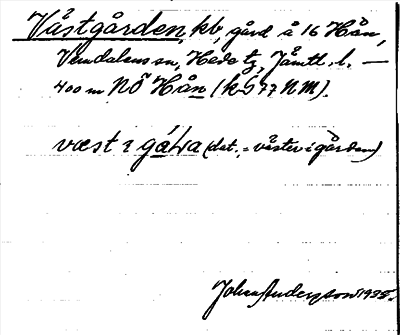 Västgården, kb, gård å 16 Hån,
Vemdalens sn, Hede tg, Jämtl. l. —
400 m NÖ Hån (kb 77 NM).
væst i gáɫɫa (dat., = väster i gården)
Johan Anderzson 1935.